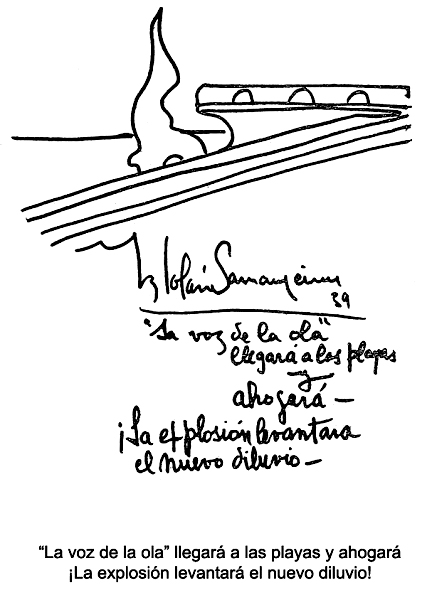 B. Solari Parravicini
39
"La voz de la ola"
llegará a las playas
y
ahogará —
¡La explosión levantara
el nuevo diluvio —
“La voz de la ola” llegará a las playas y ahogará
¡La explosión levantará el nuevo diluvio!